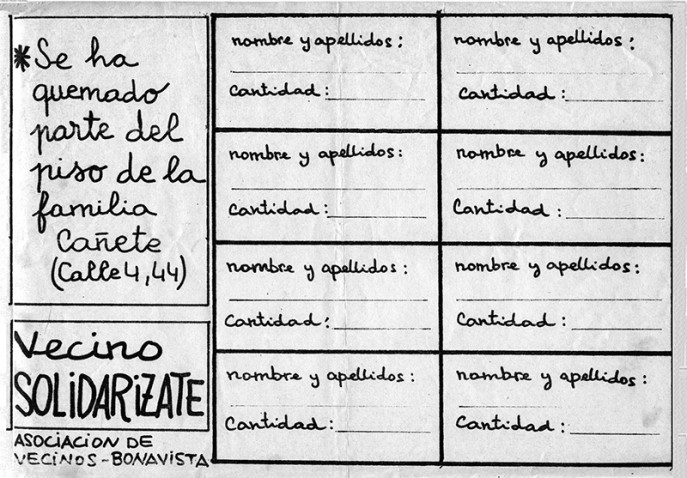 *Se ha
quemado
parte del
piso de la
familia
Cañete
(Calle 4, 44)
Vecino
SOLiDARiZATE
ASOCIACION DE
VECINOS-BONAVISTA
nombre y apellidos:
Cantidad:
nombre y apellidos:
Cantidad:
nombre y apellidos:
Cantidad:
nombre y apellidos:
Cantidad:
nombre y apellidos:
Cantidad:
nombre y apellidos:
Cantidad:
nombre y apellidos:
Cantidad:
nombre y apellidos:
Cantidad: